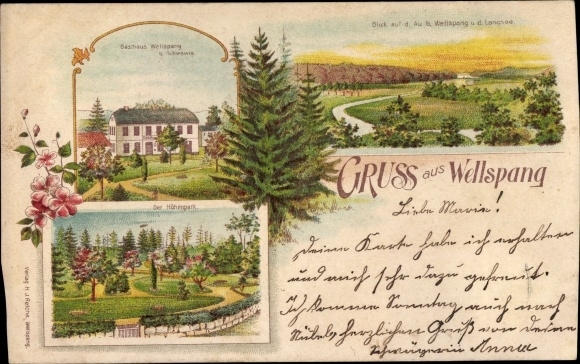 Gasthaus Wellspang
Blick auf d. Au b. Wellspang u. d. Langsee.
GRUSS aus Wellspang
Der Höhenpark.
Liebe Marie!
Deine Karte habe ich erhalten
und mich sehr dazu gefreut.
Ich komme Sonntag auch nach
Rübel, herzlichen Gruß von deiner
Schwägerin Anna
Verlag H. J.